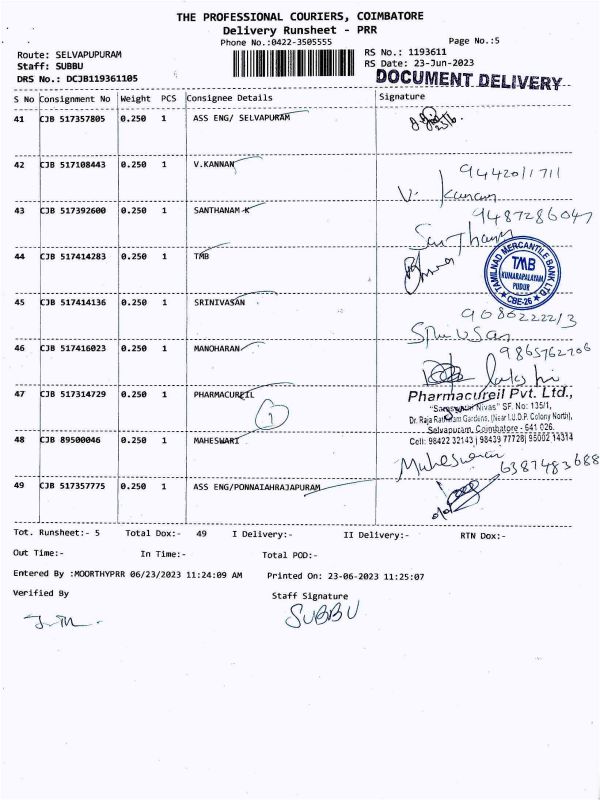 THE PROFESSIONAL COURIERS, COIMBATORE
Delivery Runsheet - PRR
Phone No.:0422-3505555
Page No.:5
Route: SELVAPUPURAM
RS No.: 1193611
Staff: SUBBU
RS Date: 23-Jun-2023
DRS No.: DCJB119361105
DOCUMENT DELIVERY
S No Consignment No Weight PCS Consignee Details Signature
41 CJB 517357805 0.250 1 ASS ENG/ SELVAPURAM
42 CJB 517108443 0.250 1 V.KANNAN
9442011711
V. Kannan
43 CJB 517392600 0.250 1 SANTHANAM K
9487286047
Santhanam
44 CJB 517414283 0.250 1 TMB
TAMILNAD MERCANTILE BANK LTD
TMB
KUMARAPALAYAM
PUDUR
CBE-26
45 CJB 517414136 0.250 1 SRINIVASAN
46 CJB 517416023 0.250 1 MANOHARAN
9865762706
47 CJB 517314729 0.250 1 PHARMACUREIL
1
Pharmacureil Pvt. Ltd.,
"Saraswathi Nivas" SF. No: 135/1,
Dr. Raja Rathinam Gardens, (Near I.U.D.P. Colony North),
Selvapuram, Coimbatore - 641 026.
Cell: 98422 32143 | 98439 77728 | 95002 14314
48 CJB 89500046 0.250 1 MAHESWARI
6387483688
49 CJB 517357775 0.250 1 ASS ENG/PONNAIAHRAJAPURAM
Tot. Runsheet:- 5 Total Dox:- 49 I Delivery:- II Delivery:- RTN Dox:-
Out Time:- In Time:- Total POD:-
Entered By :MOORTHYPRR 06/23/2023 11:24:09 AM Printed On: 23-06-2023 11:25:07
Verified By
Staff Signature
SUBBU